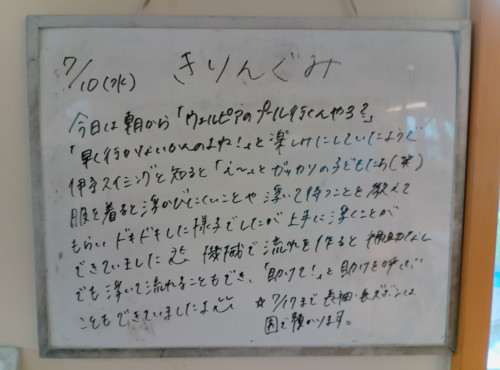 7/10(水) きりんぐみ
今日は朝から「ウェルピアのプール行くんやろ?」
「早く行かないかんのよね!」と楽しみにしていたようで
伊予スイミングと知ると「え〜っ」とガッカリの子どもたち(笑)
服を着ると浮かびにくいことや浮いて待つことを教えて
もらい、ドキドキした様子でしたが上手に浮くことが
できていました 機械で流れを作ると補助なし
でも浮いて流れることもでき、「助けて!」と助けを呼ぶ
こともできていましたよ ☆7/17まで長袖・長ズボンは
園で預かります。